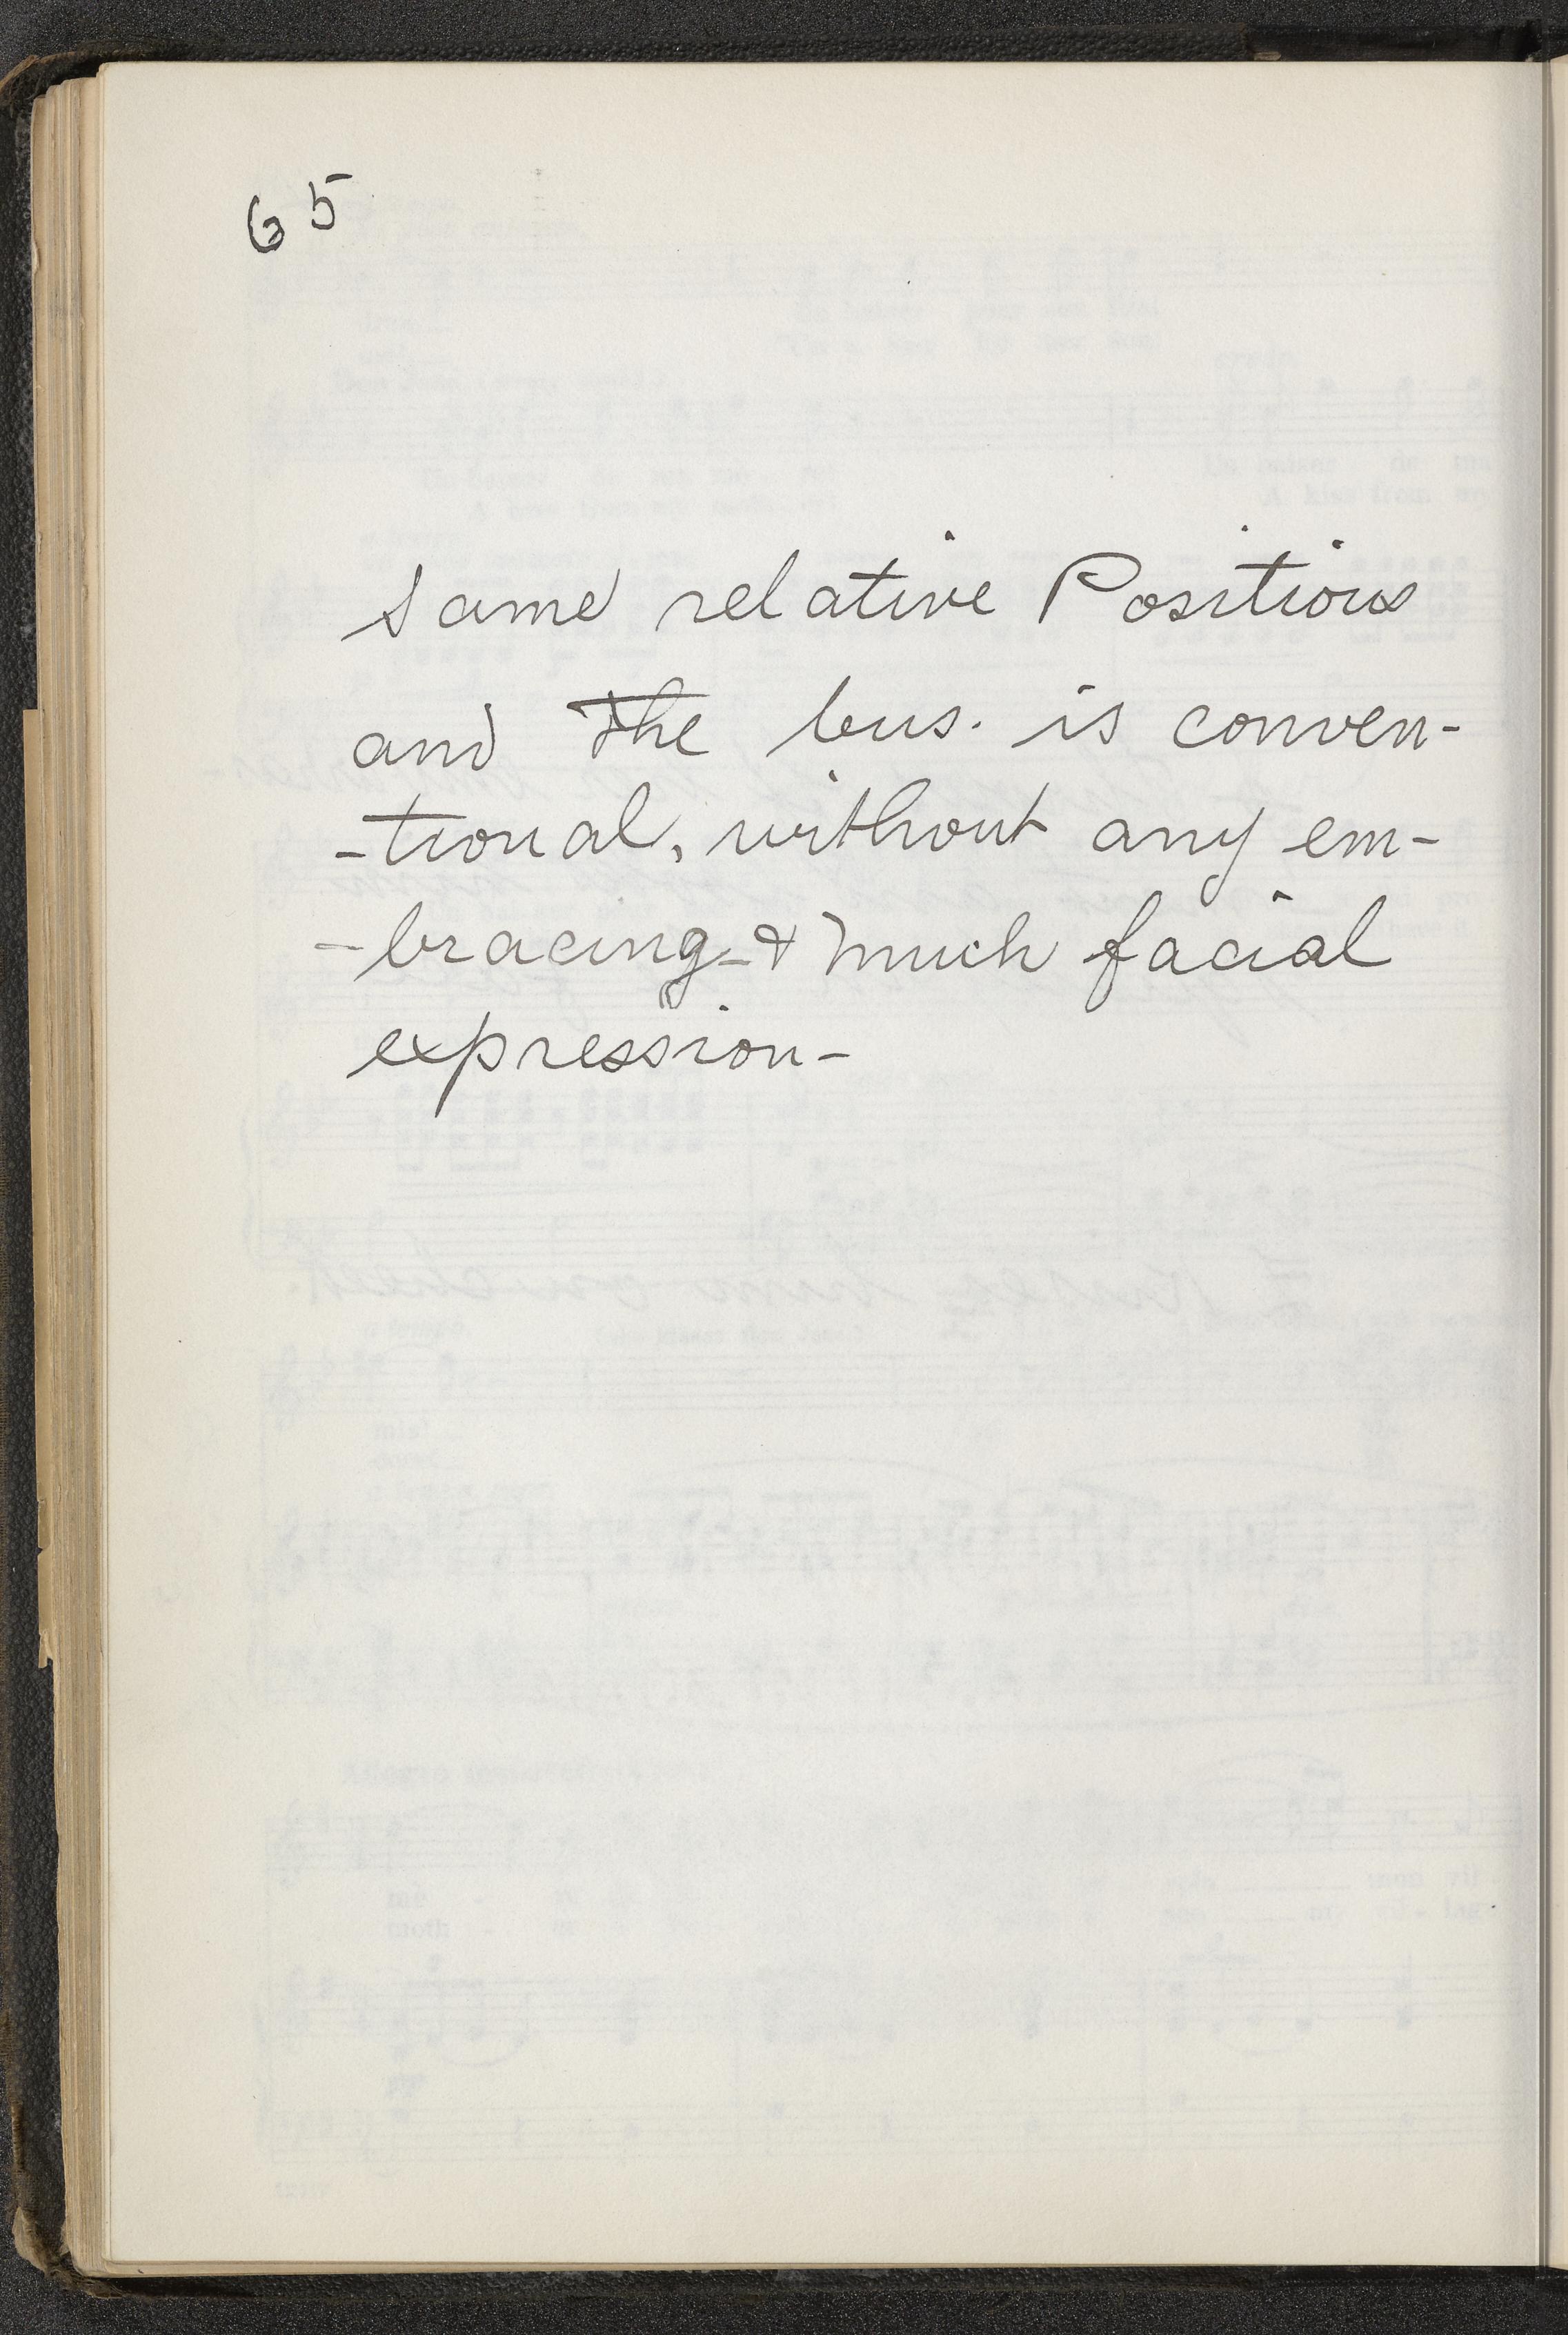 65
same relative Positions
and the bus. is conven-
-tional, without any em-
-bracing - & much facial
expression -